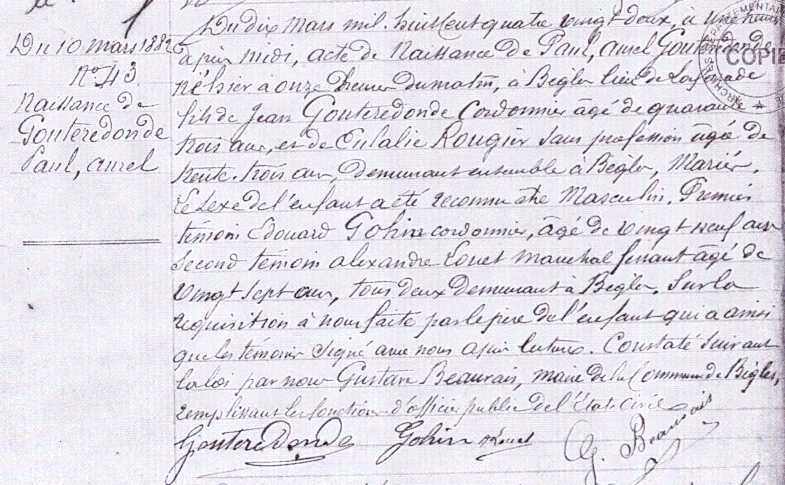 Du 10 mars 1882
N° 43
Naissance de
Gouteredonde
Paul, aurel
Du dix Mars mil huit cent quatre vingt deux, à une heure
après midi, acte de Naissance de Paul, aurel Gouteredonde
né hier à onze heures du matin, à Bègles lieu de
fils de Jean Gouteredonde Cordonnier agé de quarante
trois ans, et de Eulalie Rougier sans profession agée de
trente-trois ans, demeurant ensemble à Bègles, Mariés.
Le sexe de l'enfant a été reconnu être Masculin. Premier
témoin Edouard Gohin cordonnier, âgé de vingt neuf ans
second témoin alexandre Louet Marechal ferrant âgé de
vingt sept ans, tous deux demeurant à Bègles. Sur la
requisition à nous faite par le père de l'enfant qui a ainsi
que les témoins signé avec nous après lecture. Constaté suivant
la loi par nous Gustave Beauvais, maire de la Commune de Bègles,
remplissant les fonctions d'officier public de l'état civil
Gouteredonde Gohin Louet G. Beauvais
COPIE